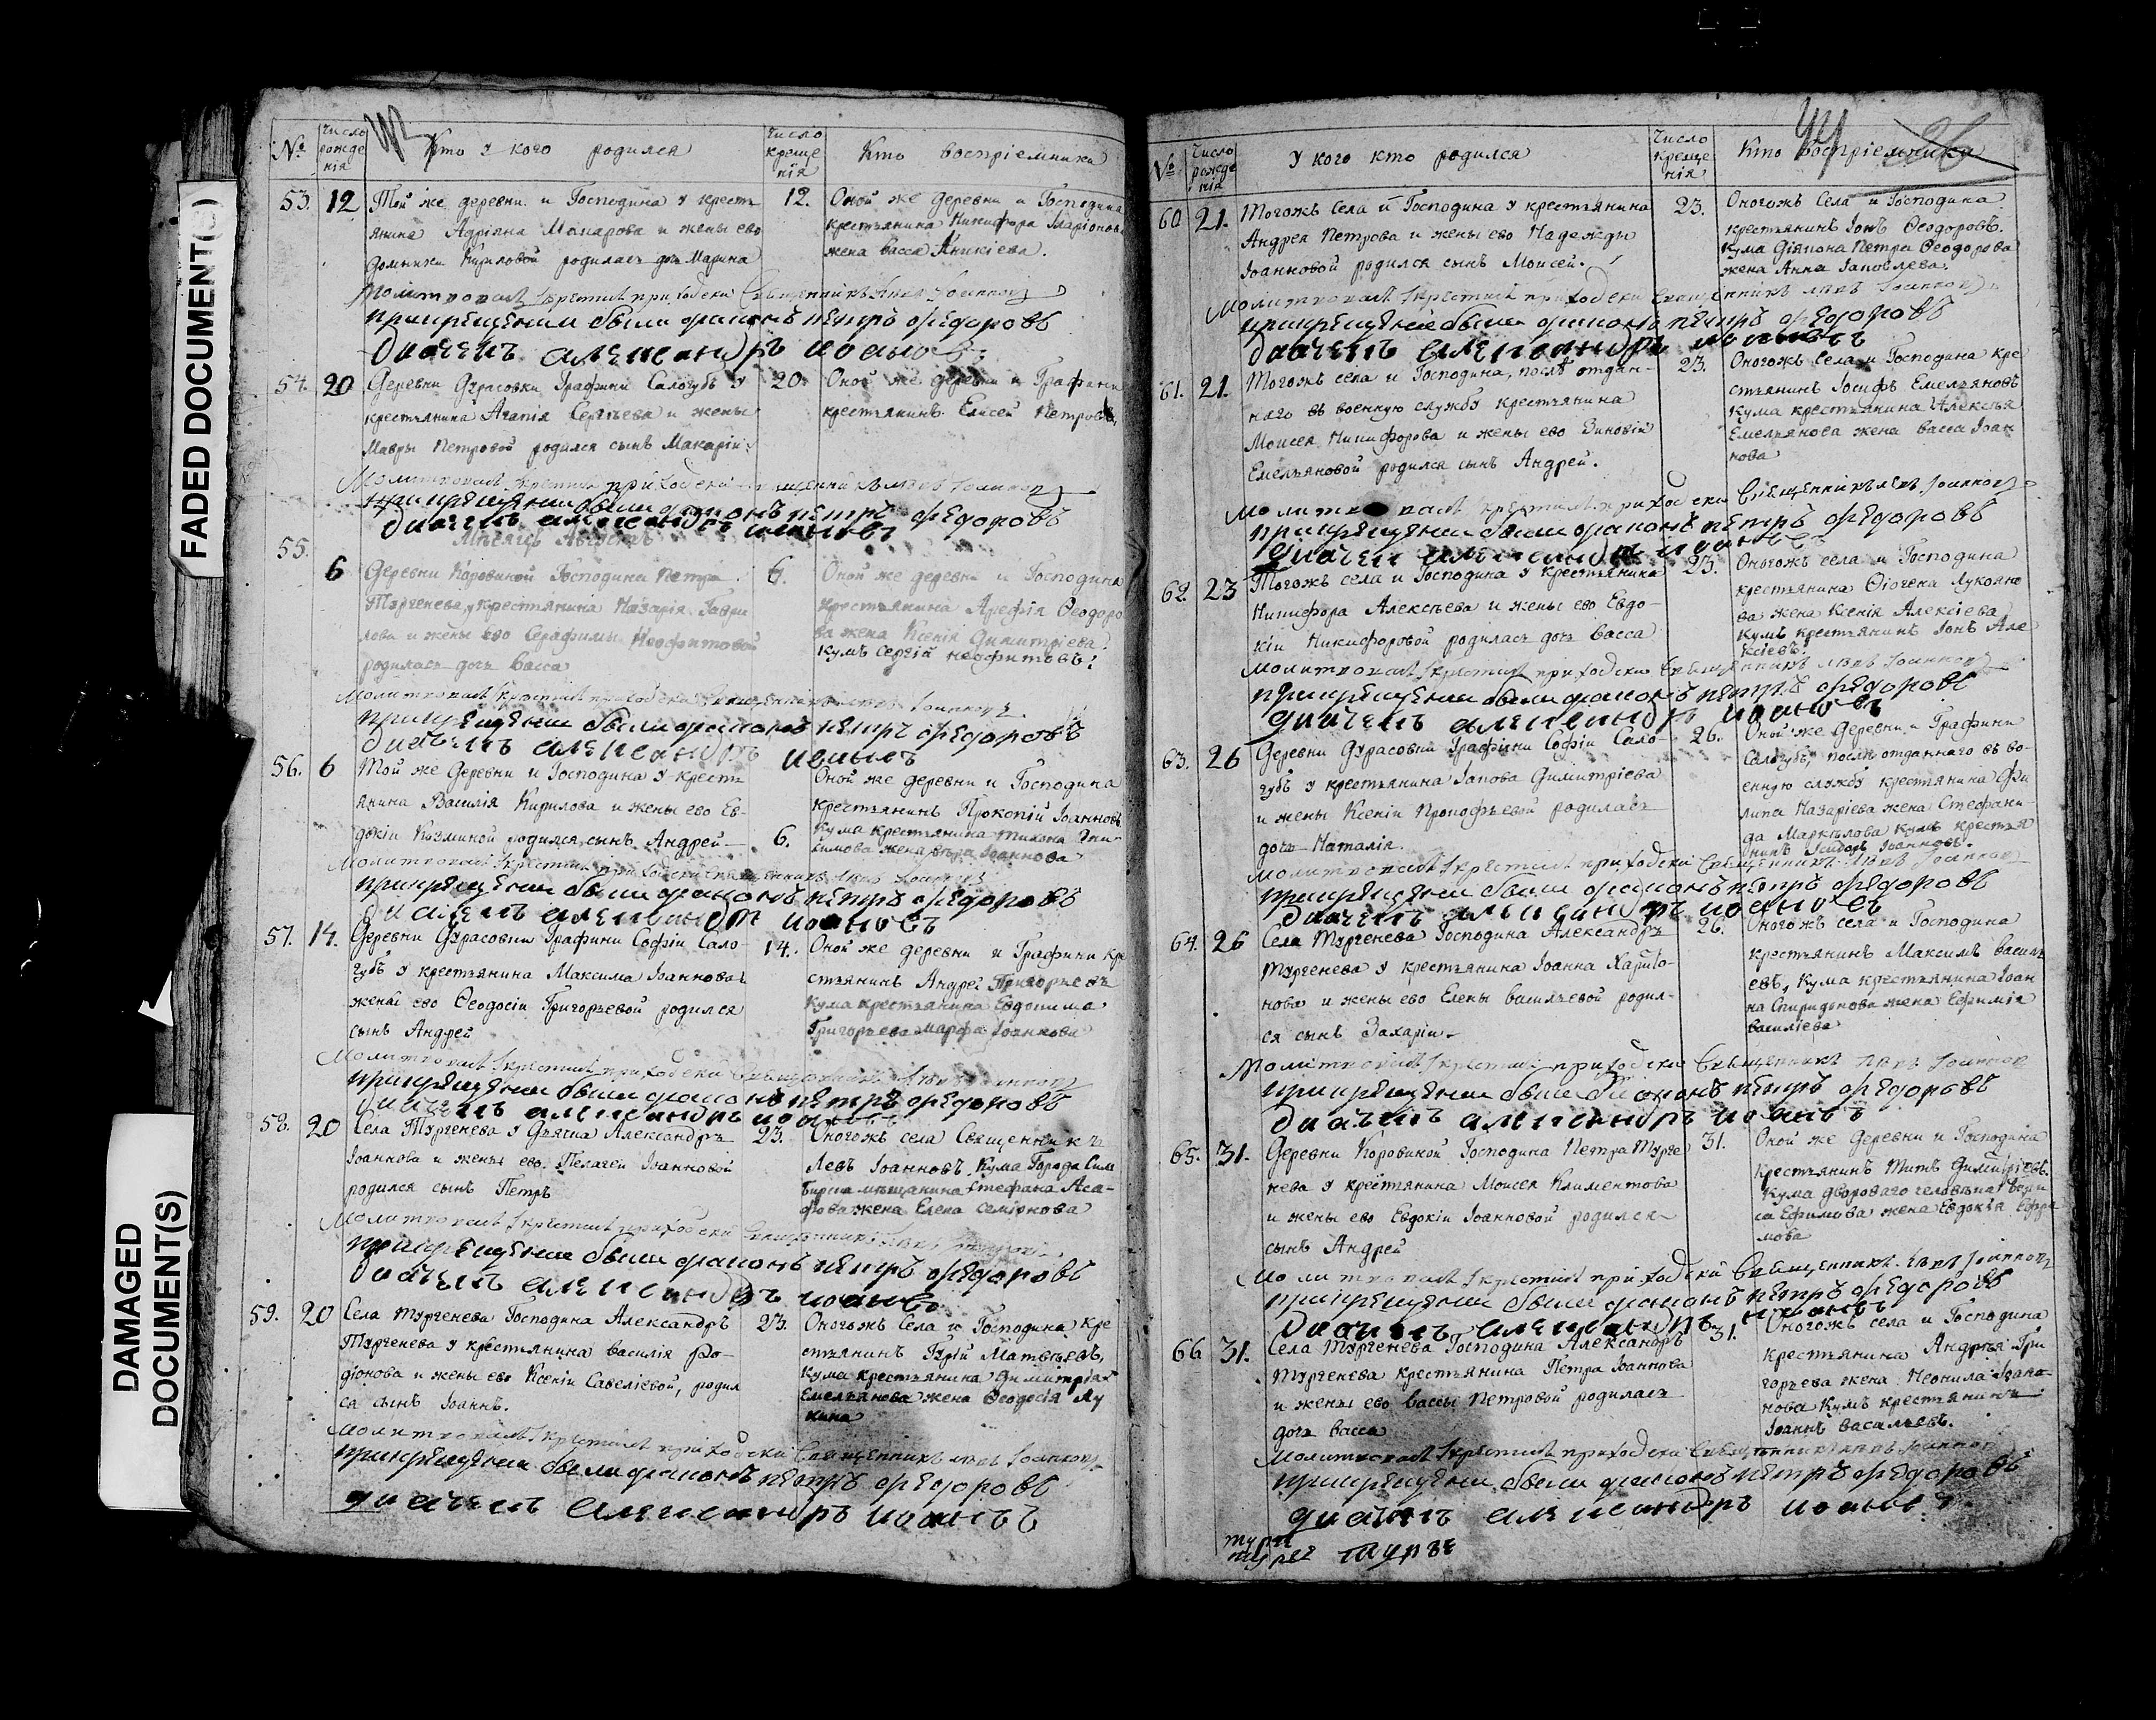 FADED DOCUMENT(S)
DAMAGED
DOCUMENT(S)
№
Число рожде нія
Кто у кого родился
Число креще нія
Кто воспріемники
53. 12 Той же деревни и Господина у кресть
янина Адріяна Макарова и жены ево
Домникіи Кириловой родилась дочь Марина
12. Оной же деревни и Господина
крестьянина Никифора Иларіонова
жена Васса Аникіева.
Молитвовалъ и крестилъ приходски Священникъ Левъ Іоанновъ
при крещении были диаконъ петръ федоровъ
диачекъ александръ иоановъ
54. 20 Деревни Дурасовки Графини Салогубъ у
крестьянина Агапія Сергѣева и жены
Мавры Петровой родился сынъ Макарій.
20. Оной же деревни и Графини
крестьянинъ Елисей Петровъ,
Молитвовалъ и крестилъ приходски Священникъ Левъ Іоанновъ
при крещении были диаконъ петръ федоровъ
диачекъ александръ иоановъ
Мѣсяцъ Августъ
55.
6 Деревни Коровиной Господина Петра
Тургенева, у крестьянина Назарія Гаври
лова и жены ево Серафимы Неофитовой
родилась дочь Васса
6. Оной же деревни и Господина
крестьянина Арефія Ѳеодоро
ва жена Ксенія Димитріева
кумъ Сергій Неофитовъ.
Молитвовалъ и крестилъ приходски Священникъ Левъ Іоанновъ
при крещении были диаконъ петръ федоровъ
диачекъ александръ иоановъ
56. 6 Той же Деревни и Господина у кресть
янина Василія Кирилова и жены ево Ев-
докіи Козминой родился сынъ Андрей
6. Оной же деревни и Господина
крестьянинъ Прокопій Іоанновъ
Кума крестьянина Тихона
жена Вѣра Іоаннова
Молитвовалъ и крестилъ приходски Священникъ Левъ Іоанновъ
при крещении были диаконъ петръ федоровъ
диачекъ александръ иоановъ
57. 14. Деревни Дурасовки Графини Софіи Сало-
губъ у крестьянина Максима Іоаннова
жены ево Ѳеодосіи Григорьевой родился
сынъ Андрей
14. Оной же деревни и Графини кре
стьянинъ Андрей Григорьевъ
Кума крестьянина Евдокима
Григорьева Марфа Іоаннова
Молитвовалъ и крестилъ приходски Священникъ Левъ Іоанновъ
при крещении были диаконъ петръ федоровъ
диачекъ александръ иоановъ
58. 20 Села Тургенева у Дьячка Александръ
Іоаннова и жены ево Пелагеи Іоанновой
родился сынъ Петръ
23. Оногожъ села Священникъ
Левъ Іоанновъ. Кума Города Сим
бирска мѣщанина Стефана Аса-
фова жена Елена Семірнова
Молитвовалъ и крестилъ приходски Священникъ Левъ Іоанновъ
при крещении были диаконъ петръ федоровъ
диачекъ александръ иоановъ
59. 20 Села Тургенева Господина Александръ
Тургенева у крестьянина Василія Ро-
діонова и жены ево Ксеніи Савеліевой, родил
ся сынъ Іоаннъ.
23. Оногожъ Села и Господина кре
стьянинъ Гурій Матвѣевъ,
Кума крестьянина Димитрія
Емельянова жена Ѳеодосія Лу
кина
Молитвовалъ и крестилъ приходски Священникъ Левъ Іоанновъ
при крещении были диаконъ петръ федоровъ
диачекъ александръ иоановъ
№
Число рожде нія
У кого кто родился
Число креще нія
Кто воспріемники
60 21. Тогожъ Села и Господина у крестьянина
Андрея Петрова и жены ево Надежды
Іоанновой родился сынъ Моисей.
23. Оногожъ Села и Господина
крестьянинъ Іонъ Ѳеодоровъ.
Кума Діякона Петра Ѳеодорова
жена Анна Іаковлева.
Молитвовалъ и крестилъ приходски Священникъ Левъ Іоанновъ
при крещении были диаконъ петръ федоровъ
диачекъ александръ иоановъ
61. 21. Тогожъ села и Господина, послѣ отдан-
наго въ военную службу крестьянина
Моисея Никифорова и жены ево Зиновіи
Емельяновой родился сынъ Андрей.
23. Оногожъ Села и Господина кре
стьянинъ Іосифъ Емельяновъ
Кума крестьянина Алексѣя
Емельянова жена Васса Іоан
нова
Молитвовалъ и крестилъ приходски Священникъ Левъ Іоанновъ
при крещении были диаконъ петръ федоровъ
диачекъ александръ иоановъ
62. 23 Тогожъ села и Господина у крестьянина
Никифора Алексѣева и жены ево Евдо-
кіи Никифоровой родилась дочь Васса
23. Оногожъ села и Господина
крестьянина Діогена Лукояно
ва жена Ксенія Алексіева
Кумъ крестьянинъ Іонъ Але
ксіевъ
Молитвовалъ и крестилъ приходски Священникъ Левъ Іоанновъ
при крещении были диаконъ петръ федоровъ
диачекъ александръ иоановъ
63. 26 Деревни Дурасовки Графини Софіи Сало-
губъ у крестьянина Іакова Димитріева
и жены Ксеніи Прокофьевой родилась
дочь Наталія.
26. Оной же Деревни и Графини
Салогубъ, послѣ отданнаго въ во-
енную службу крестьянина Фи
липа Назаріева жена Стефани-
да Маркѣлова кумъ крестья
нинъ Исидоръ Іоанновъ.
Молитвовалъ и крестилъ приходски Священникъ Левъ Іоанновъ
при крещении были диаконъ петръ федоровъ
диачекъ александръ иоановъ
64. 26 Села Тургенева Господина Александръ
Тургенева у крестьянина Іоанна Харито-
нова и жены ево Елены Васильевой родил-
ся сынъ Захарій
26. Оногожъ села и Господина
крестьянинъ Максимъ Василь
евъ, Кума крестьянина Іоан
на Спиридонова жена Ефимія
Василіева
Молитвовалъ и крестилъ приходски Священникъ Левъ Іоанновъ
при крещении были диаконъ петръ федоровъ
диачекъ александръ иоановъ
65. 31. Деревни Коровиной Господина Петра Турге
нева у крестьянина Моисея Климентова
и жены ево Евдокіи Іоанновой родился
сынъ Андрей
31. Оной же Деревни и Господина
крестьянинъ Титъ Димитріевъ.
Кума дворового человѣка Бори
са Ефимова жена Евдокія Ефре
мова
Молитвовалъ и крестилъ приходскій Священникъ Левъ Іоанновъ
при крещении были диаконъ петръ федоровъ
диачекъ александръ иоановъ
66 31. Села Тургенева Господина Александръ
Тургенева крестьянина Петра Іоаннова
и жены ево Вассы Петровой родилась
дочь Васса
31. Оногожъ села и Господина
крестьянина Андрея Гри
горьева жена Неонила Іоан-
нова Кумъ крестьянинъ
Іоаннъ Васильевъ.
Молитвовалъ и крестилъ приходски Священникъ Левъ Іоанновъ
при крещении были диаконъ петръ федоровъ
диачекъ александръ иоановъ